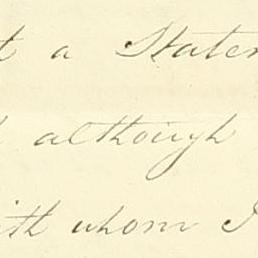 t a Staten
although
ith whom I